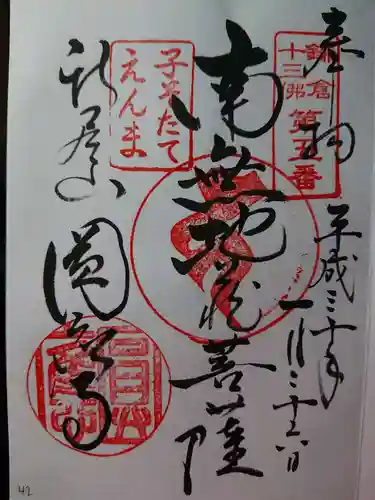 奉拝
平成三十年
一月二十六日
鎌倉
十三佛
第五番
南無地蔵菩薩
子そたて
えんま
新居山
圓應寺
42